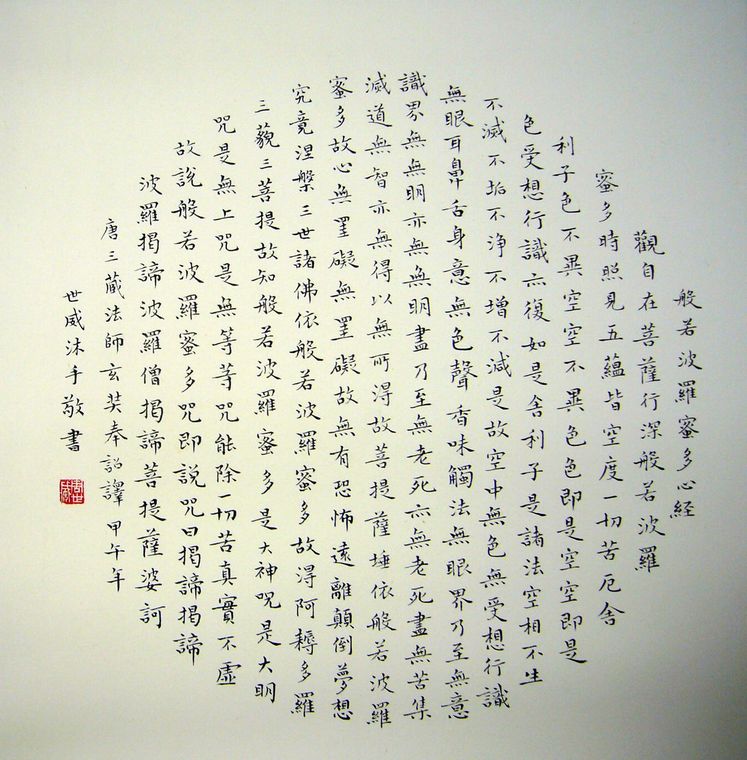 般若波羅蜜多心経
觀自在菩薩行深般若波羅
蜜多時照見五蘊皆空度一切苦厄舍
利子色不異空空不異色色即是空空即是
色受想行識亦復如是舍利子是諸法空相不生
不滅不垢不淨不增不減是故空中無色無受想行識
無眼耳鼻舌身意無色聲香味觸法無眼界乃至無意
識界無無明亦無無明盡乃至無老死亦無老死盡無苦集
滅道無智亦無得以無所得故菩提薩埵依般若波羅
蜜多故心無罣礙無罣礙故無有恐怖遠離顛倒夢想
究竟涅槃三世諸佛依般若波羅蜜多故得阿耨多羅
三藐三菩提故知般若波羅蜜多是大神咒是大明
咒是無上咒是無等等咒能除一切苦真實不虛
故說般若波羅蜜多咒即說咒曰揭諦揭諦
波羅揭諦波羅僧揭諦菩提薩婆訶
唐三藏法師玄奘奉詔譯甲午年
世威沐手敬書